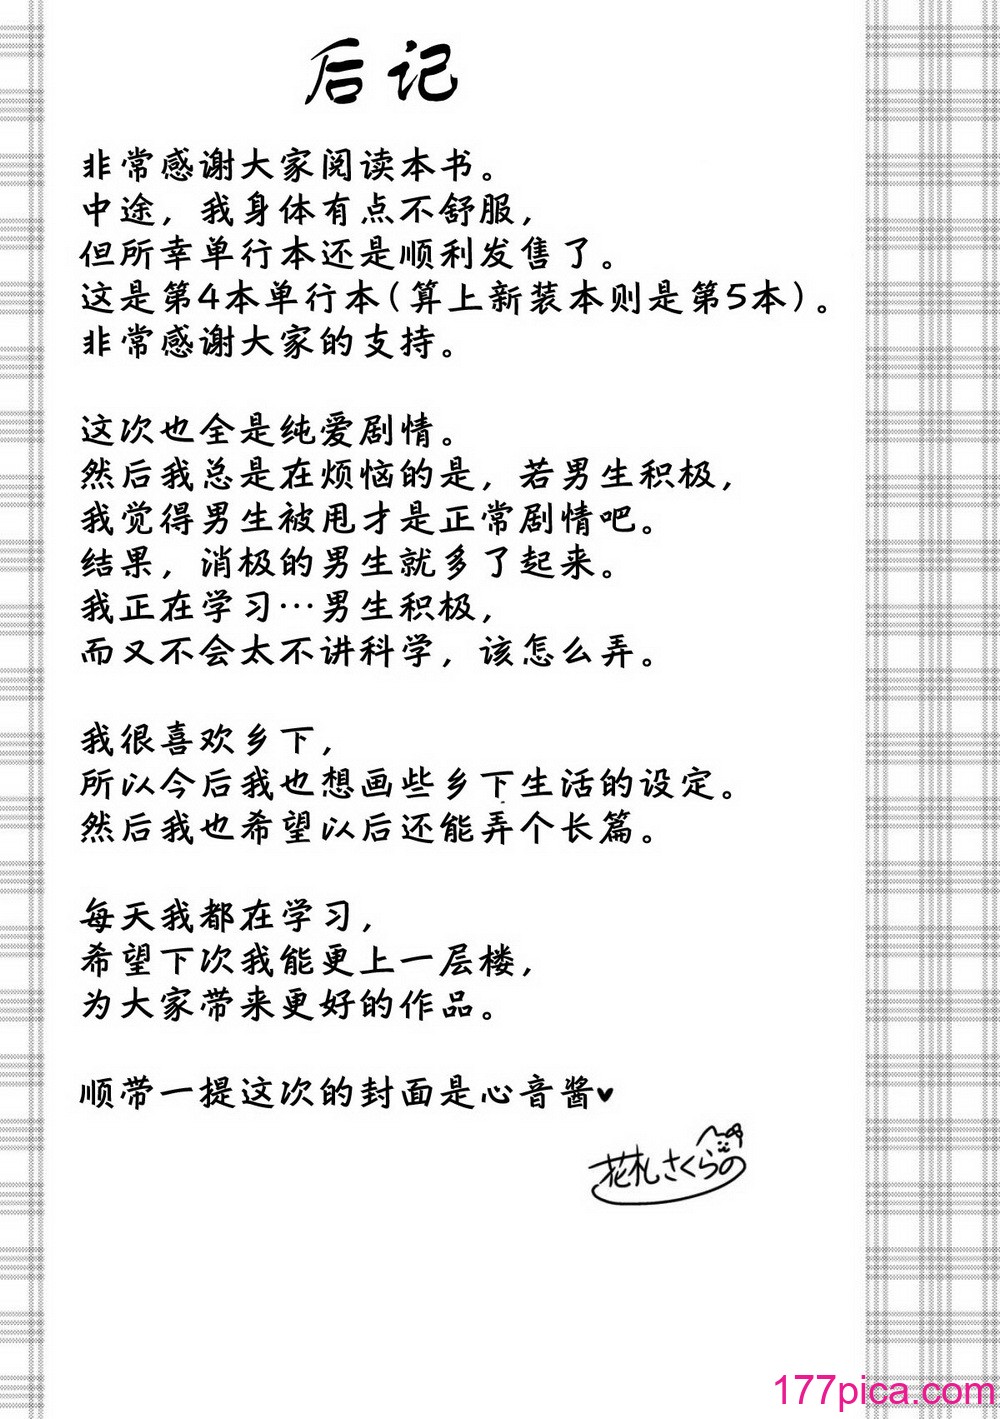 后记
非常感谢大家阅读本书。
中途，我身体有点不舒服，
但所幸单行本还是顺利发售了。
这是第4本单行本（算上新装本则是第5本）。
非常感谢大家的支持。
这次也全是纯爱剧情。
然后我总是在烦恼的是，若男生积极，
我觉得男生被甩才是正常剧情吧。
结果，消极的男生就多了起来。
我正在学习…男生积极，
而又不会太不讲科学，该怎么弄。
我很喜欢乡下，
所以今后我也想画些乡下生活的设定。
然后我也希望以后还能弄个长篇。
每天我都在学习，
希望下次我能更上一层楼，
为大家带来更好的作品。
顺带一提这次的封面是心音酱♥
花札さくらの
177pica.com